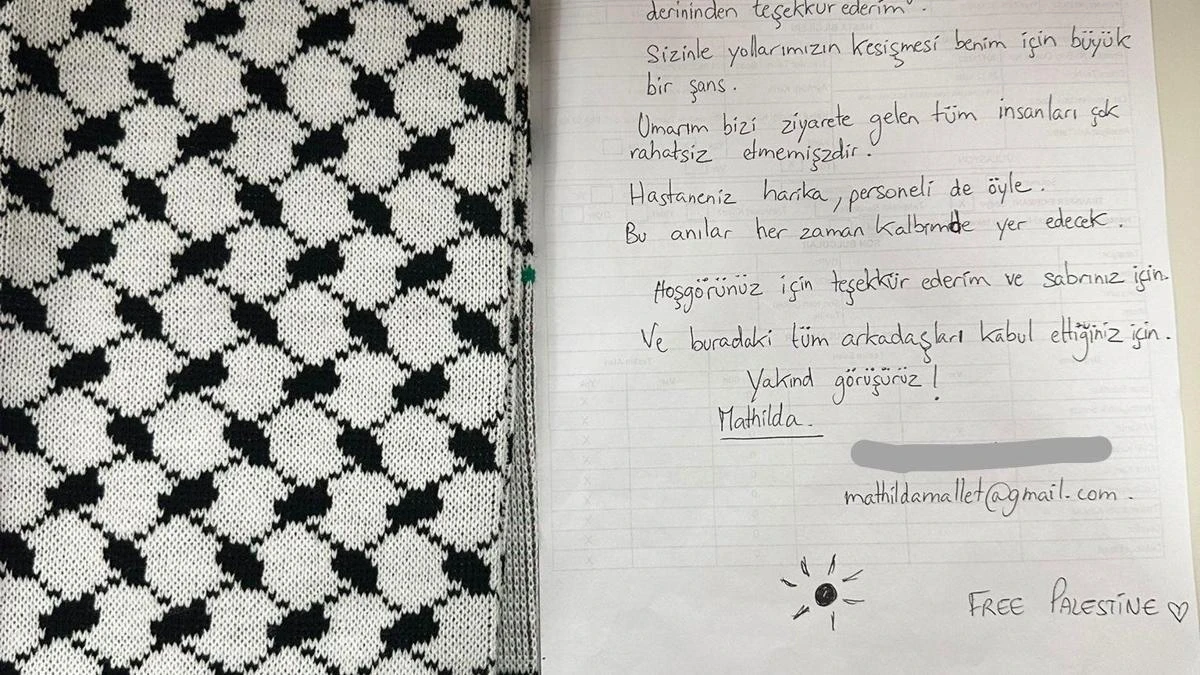 derininden teşekkür ederim".
Sizinle yollarımızın kesişmesi benim için büyük
bir şans.
Umarım bizi ziyarete gelen tüm insanları çok
rahatsiz etmemişzdir.
Hastaneniz harika, personeli de öyle.
Bu anılar her zaman kalbimde yer edecek.
Hoşgörünüz için teşekkür ederim ve sabrınız için.
Ve buradaki tüm arkadaşları kabul ettiğiniz için.
Yakind görüşürüz!
Mathilda.
mathildamallet@gmail.com.
FREE PALESTINE ♡